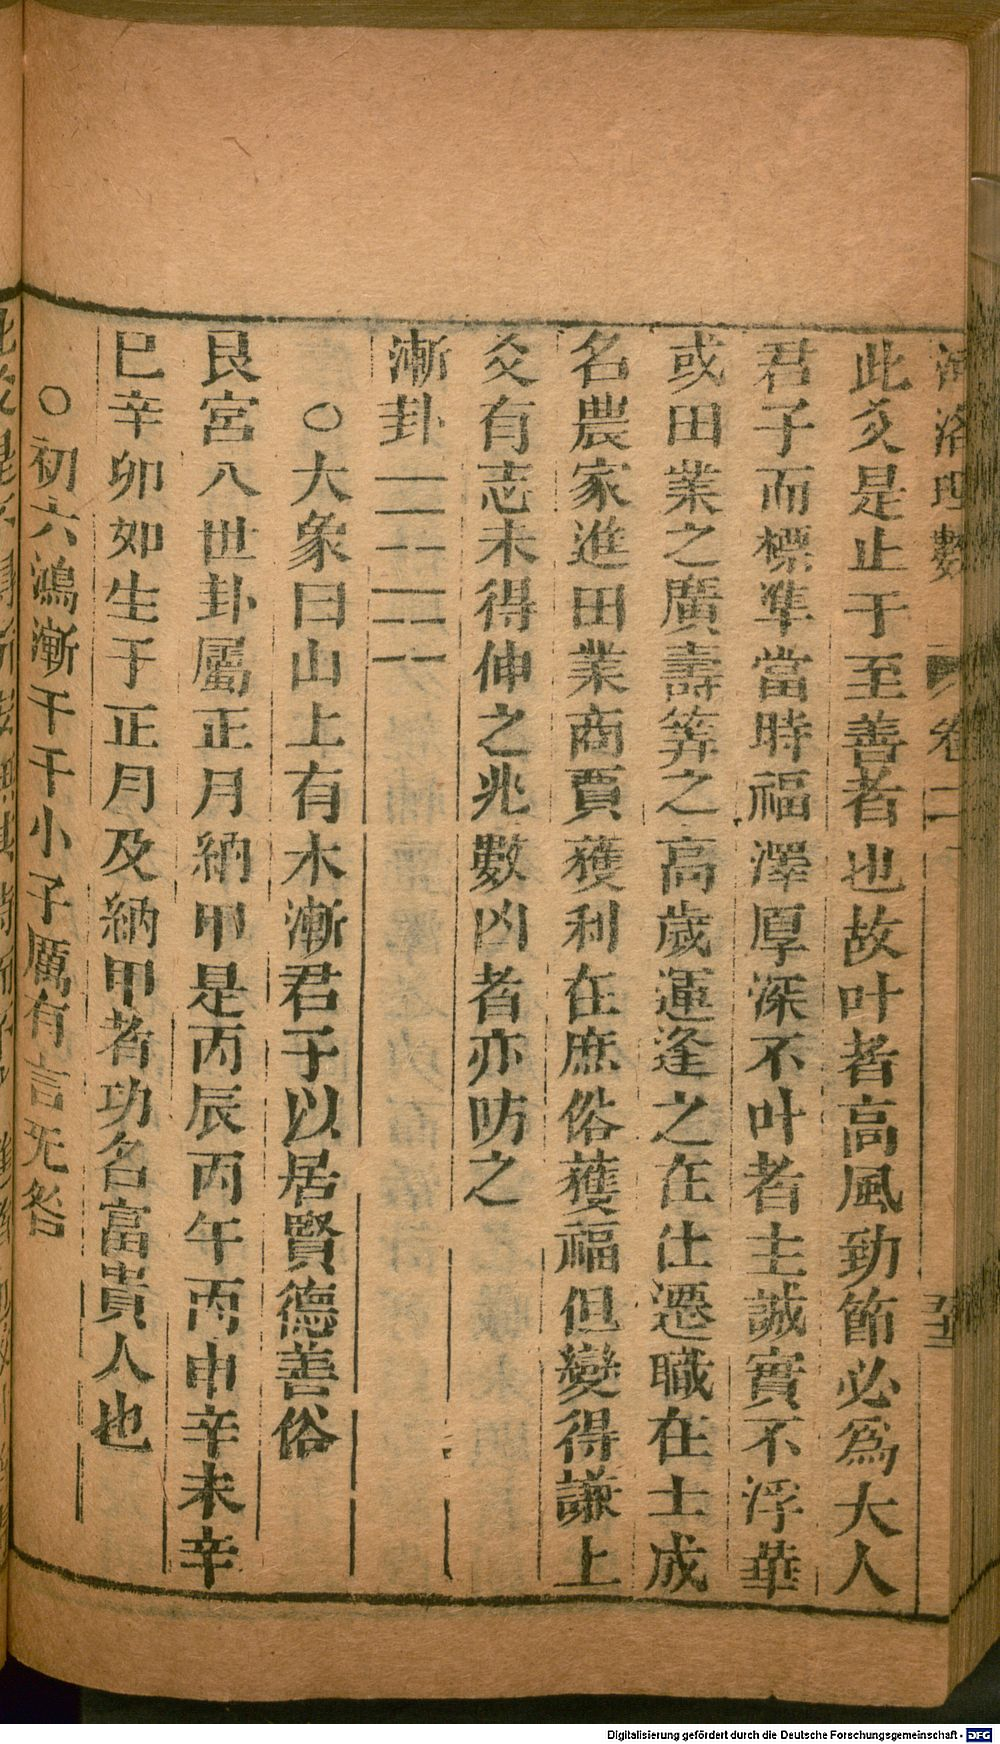 河洛理數 卷二 五十
此爻是止于至善者也故叶者高風勁節必爲大人
君子而標準當時福澤厚深不叶者主誠實不浮華
或田業之廣壽筭之高歲運逢之在仕遷職在士成
名農家進田業商賈獲利在庶俗獲福但變得謙上
爻有志未得伸之兆數凶者亦防之
漸卦
○大象曰山上有木漸君子以居賢德善俗
艮宮八世卦屬正月納甲是丙辰丙午丙申辛未辛
巳辛卯如生于正月及納甲者功名富貴人也
○初六鴻漸干干小子厲有言旡咎
Digitalisierung gefördert durch die Deutsche Forschungsgemeinschaft - DFG